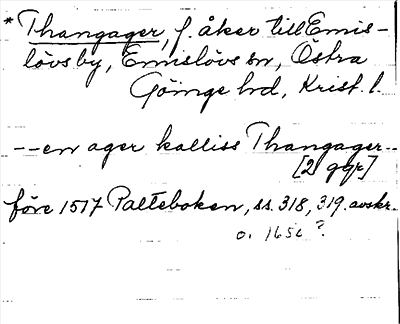 * Thangager, f. åker till Emis-
lövs by, Emislövs sn, Östra
Göinge hd, Krist. l.
-- en ager kalliss Thangager--
[2 ggr]
före 1517 Palteboken, ss. 318, 319. avskr.
o. 1650?